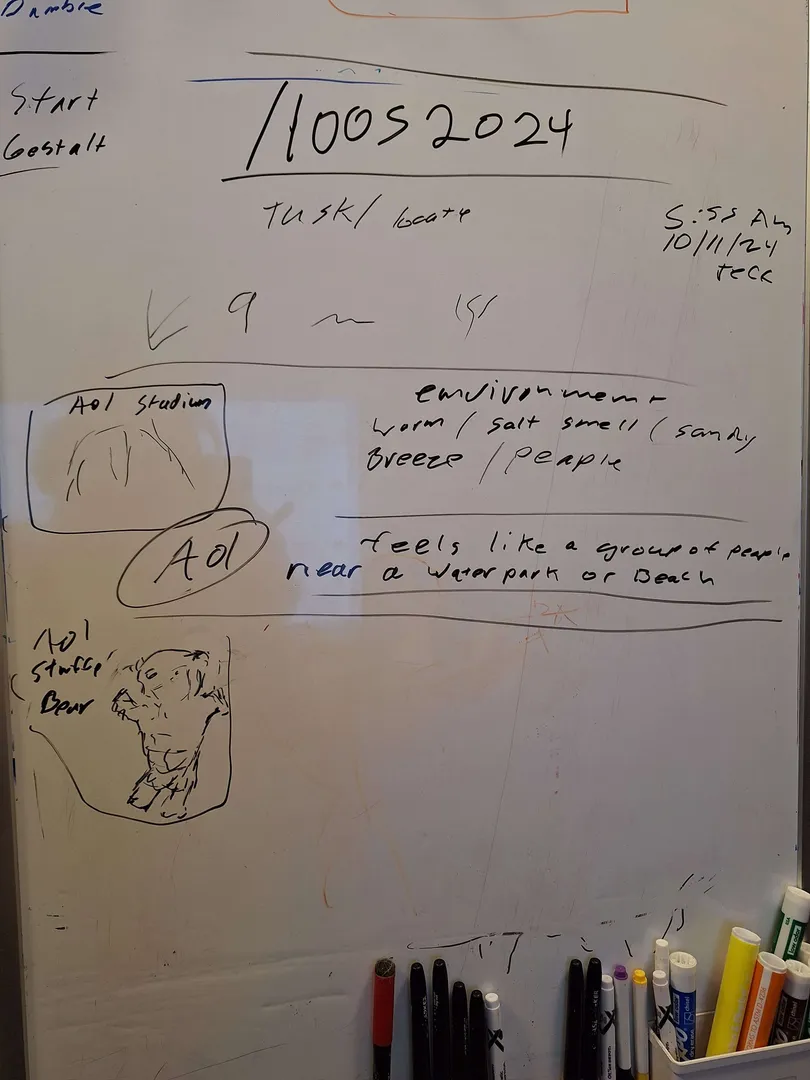 Start
Gestalt
/10052024
Tusk/ locate
5:55 Am
10/11/24
Teck
Aol Stadium
environment
worm / salt smell / sandy
Breeze / People
Aol
feels like a group of people
near a water park or Beach
Aol
Bear